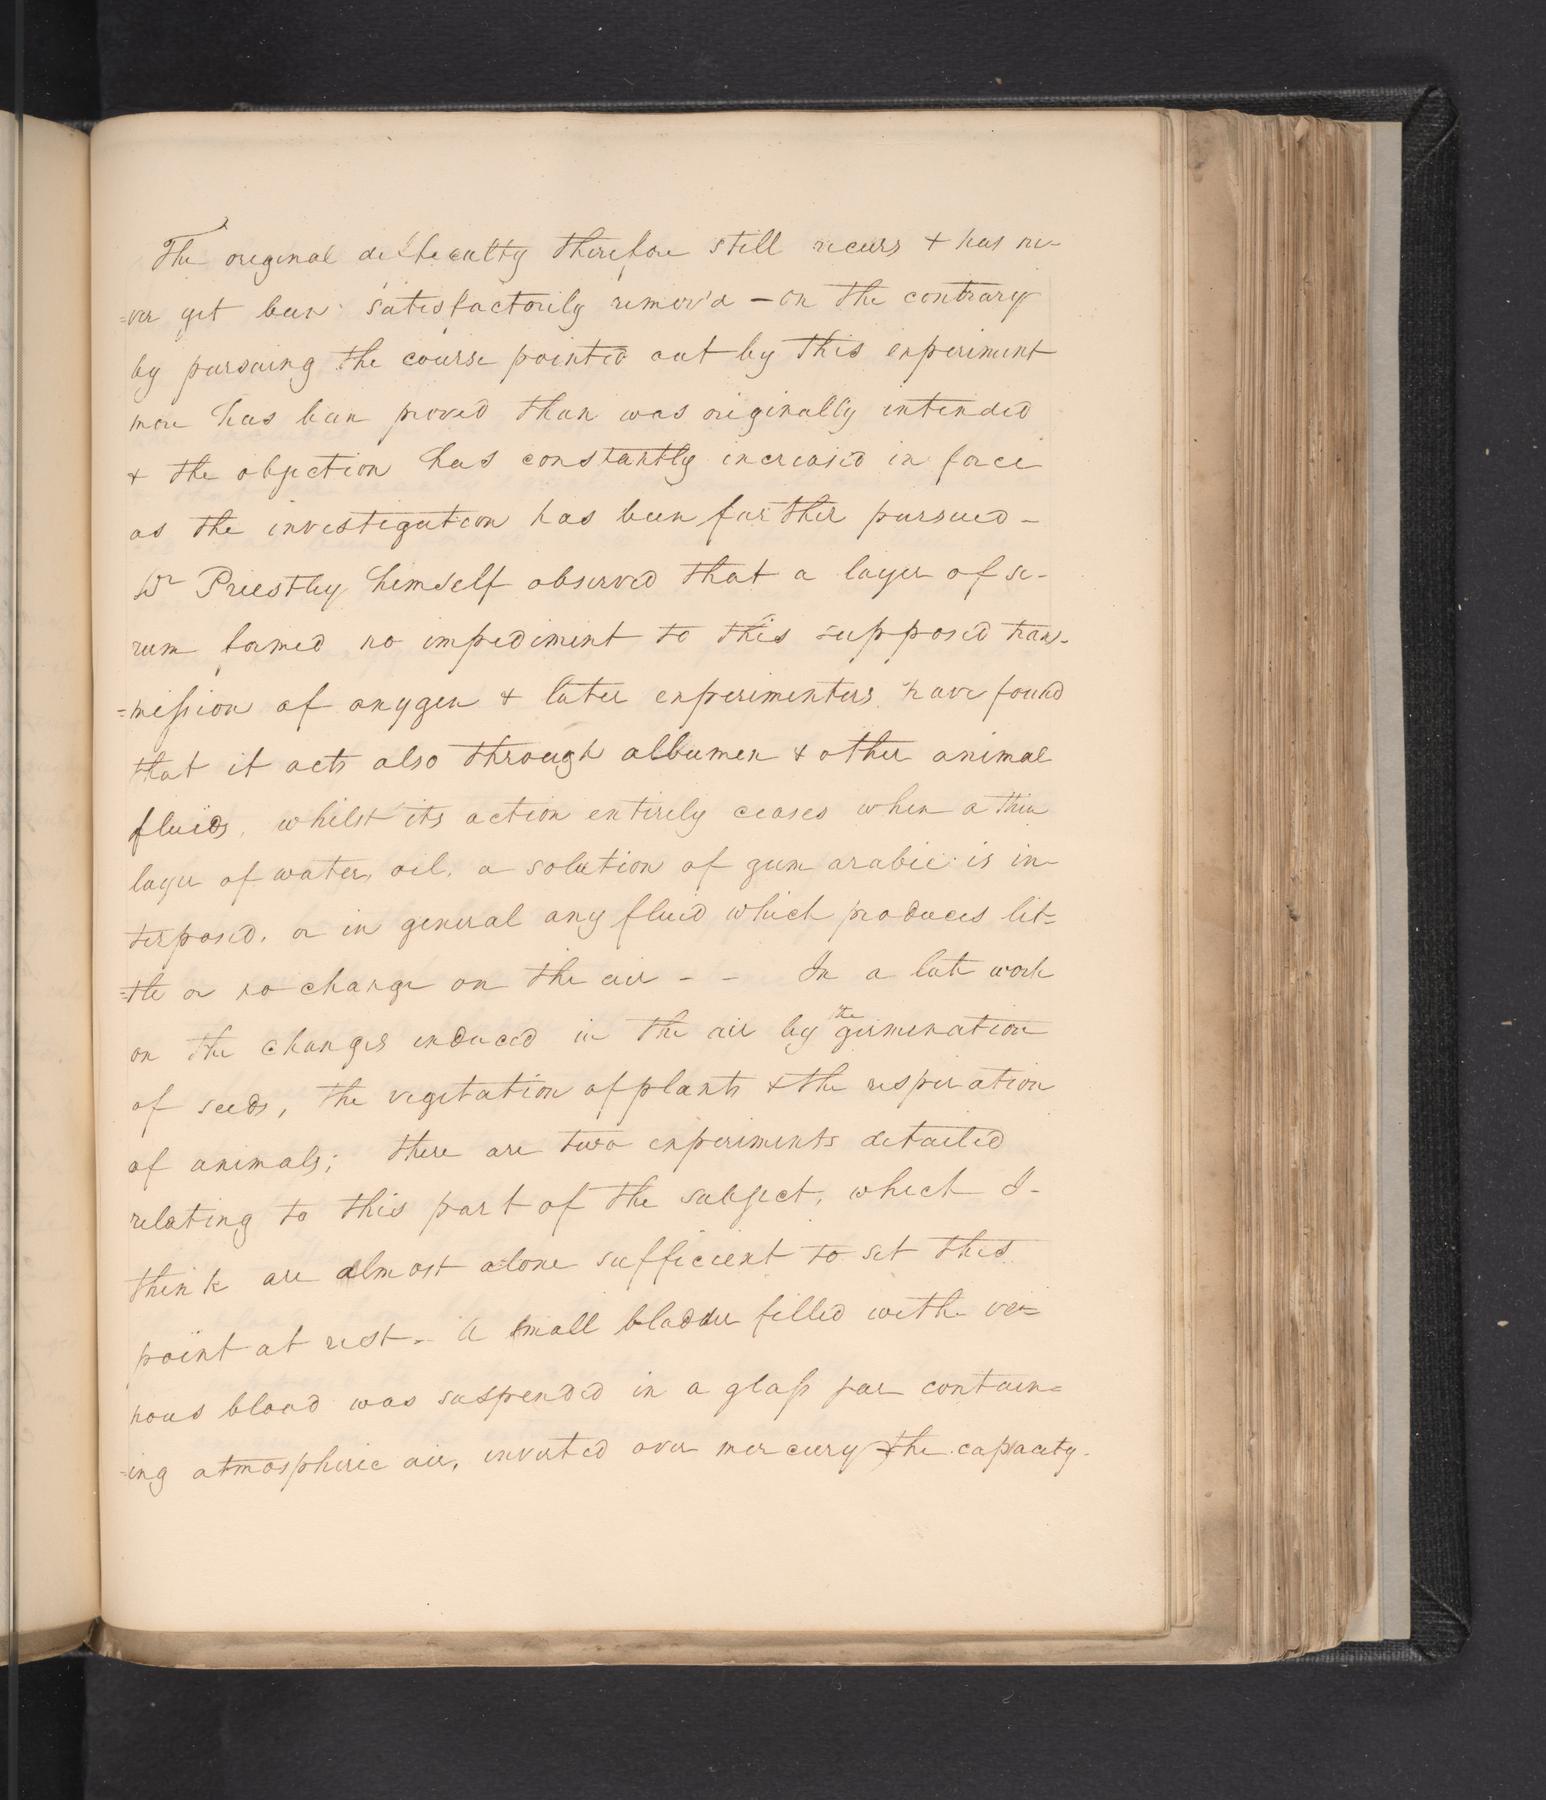 The original difficulty therefore still recurs + has ne-
=ver yet been satisfactorily remov'd - on the contrary
by pursuing the course pointed out by this experiment
more has been proved than was originally intended
+ the objection has constantly increased in force
as the investigation has been further pursued -
Dr Priestley himself observed that a layer of se-
rum formed no impediment to this supposed trans-
=mission of oxygen + later experimenters have found
that it acts also through albumen + other animal
fluids, whilst its action entirely ceases when a thin
layer of water, oil, a solution of gum arabic is in-
terposed, or in general any fluid which produces lit=
=tle or no change on the air - - In a late work
on the changes induced in the air by the germination
of seeds, the vegetation of plants + the respiration
of animals; there are two experiments detailed
relating to this part of the subject, which I -
think are almost alone sufficient to set this
point at rest - A small bladder filled with ve=
nous blood was suspended in a glass jar contain=
=ing atmospheric air, inverted over mercury + the capacity